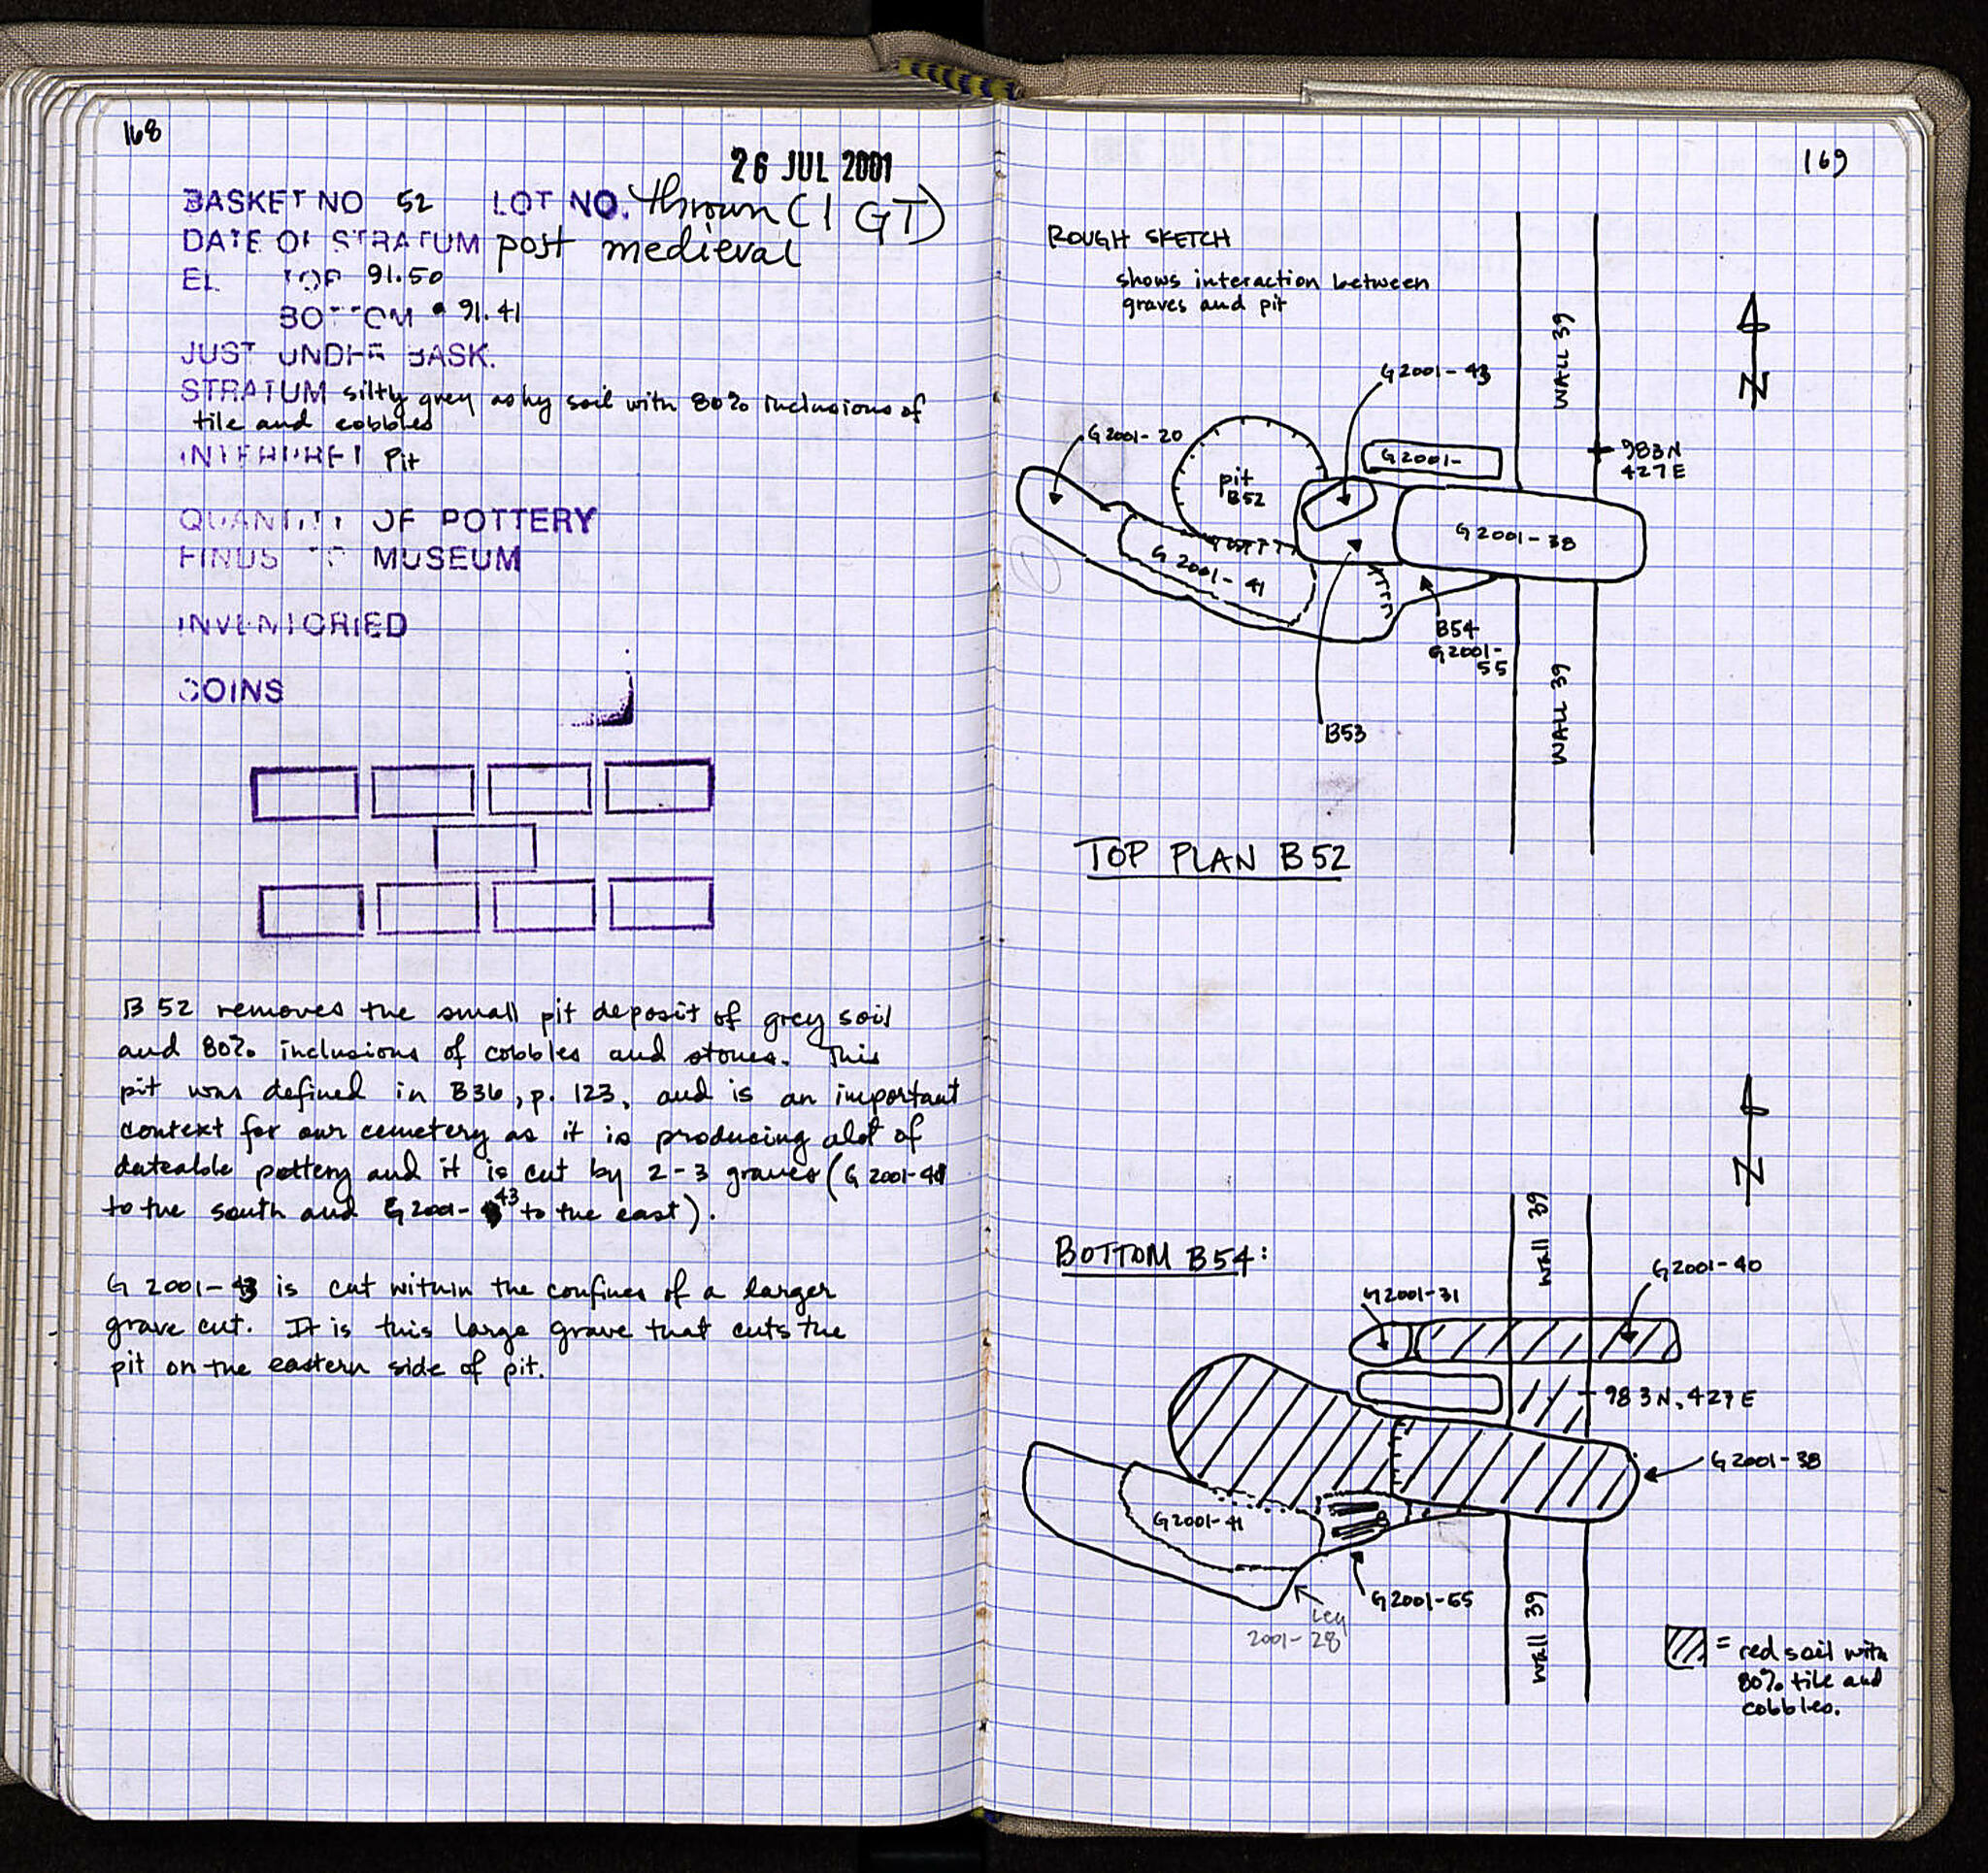 168
26 JUL 2001
BASKET NO 52 LOT NO. thrown (1 GT)
DATE OF STRATUM post medieval
EL TOP 91.50
BOTTOM 91.41
JUST UNDER BASK.
STRATUM silty grey ashy soil with 80% inclusions of
tile and cobbles
INTERPRET Pit
QUANTITY OF POTTERY
FINDS TO MUSEUM
INVENTORIED
COINS
B 52 removes the small pit deposit of grey soil
and 80% inclusions of cobbles and stones. This
pit was defined in B36, p. 123, and is an important
context for our cemetery as it is producing alot of
dateable pottery and it is cut by 2-3 graves (G 2001-41
to the south and G 2001-43 to the east).
G 2001-43 is cut within the confines of a larger
grave cut. It is this large grave that cuts the
pit on the eastern side of pit.
169
ROUGH SKETCH
shows interaction between
graves and pit
WALL 39
N
G2001-43
G2001-20
G2001-
983N
427E
pit
B52
G2001-38
G2001-41
B54
G2001-
55
WALL 39
B53
TOP PLAN B52
N
BOTTOM B54:
Wall 39
G2001-40
G2001-31
983N, 427E
G2001-38
G2001-41
G2001-55
2001-28
Wall 39
= red soil with
80% tile and
cobbles.